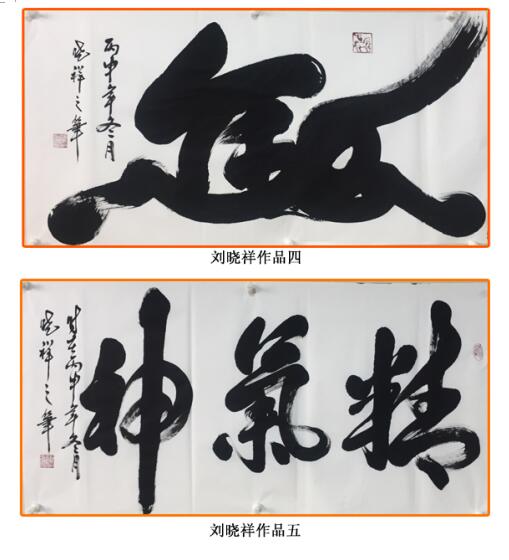 丙申年冬月
晓祥之筆
刘晓祥作品四
精氣神
丙申年冬月
晓祥之筆
刘晓祥作品五